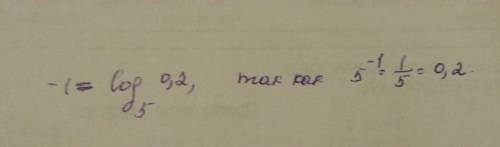 -1 = log₅ 0,2, так как 5⁻¹ = 1/5 = 0,2.